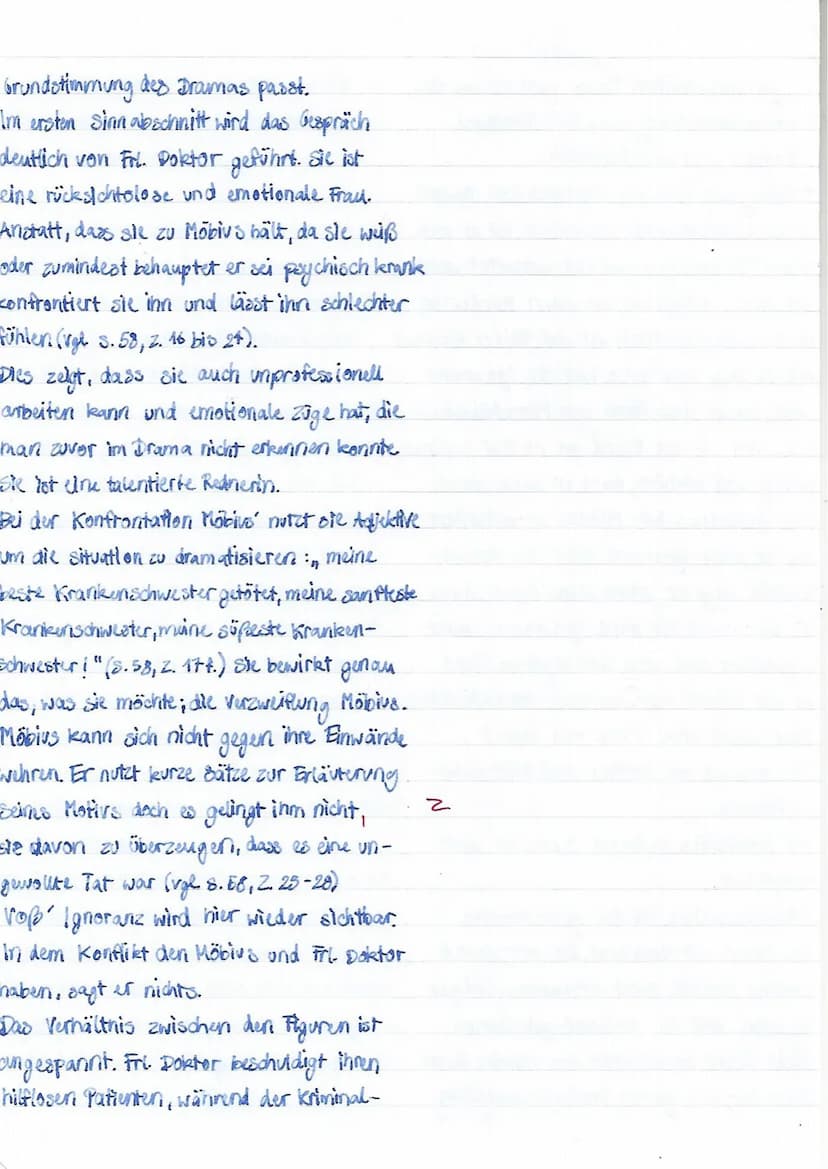 Grundstimmung des Dramas passt.
Im ersten Sinnabschnitt wird das Gespräch
deutlich von Frl. Doktor geführt. Sie ist
eine rücksichtslose und emotionale Frau.
Anstatt, dass sie zu Möbius hält, da sie weiß
oder zumindest behauptet er sei psychisch krank
konfrontiert sie ihn und lässt ihn schlechter
fühlen. (vgl. S. 58, Z. 16 bis 21).
Dies zeigt, dass sie auch unprofessionell
arbeiten kann und emotionale Züge hat, die
man zuvor im Drama nicht erkennen konnte.
Sie ist eine talentierte Rednerin.
Bei der Konfrontation Möbius' nutzt sie Adjektive
um die Situation zu dramatisieren: „meine
beste Krankenschwester getötet, meine sanfteste
Krankenschwester, meine süßeste Kranken-
schwester!" (S. 58, Z. 17f.) Sie bewirkt genau
das, was sie möchte; die Verzweiflung Möbius.
Möbius kann sich nicht gegen ihre Einwände
wehren. Er nutzt kurze Sätze zur Erläuterung
seines Motivs doch es gelingt ihm nicht, Z
sie davon zu überzeugen, dass es eine un-
gewollte Tat war (vgl. S. 58, Z. 25-28)
Voß' Ignoranz wird hier wieder sichtbar.
In dem Konflikt den Möbius und Frl. Doktor
haben, sagt er nichts.
Das Verhältnis zwischen den Figuren ist
angespannt. Frl. Doktor beschuldigt ihren
hilflosen Patienten, während der Kriminal-